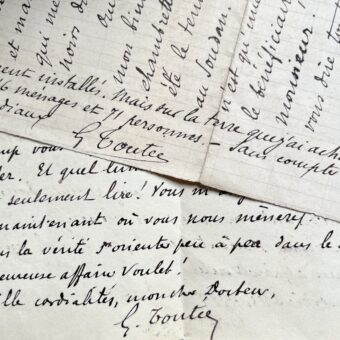 et ma
qui me
hoirs d
ou
mon bin
chambrett
été le ter
au Soudan.
n'est qu'une
le bénéficiai
monsieur !
vous dire to
ent installés. Mais sur la terre que j'ai ach
6 ménages et 71 personnes. — Sans compte
diaux
G Toutée
up vou
er. Et quel
seulement lire! Vous m
maintenant où vous nous mènerez.
la vérité s'oriente peu à peu dans le
eureuse affaire Voulet!
lle cordialités, mon cher Docteur,
G. Toutée